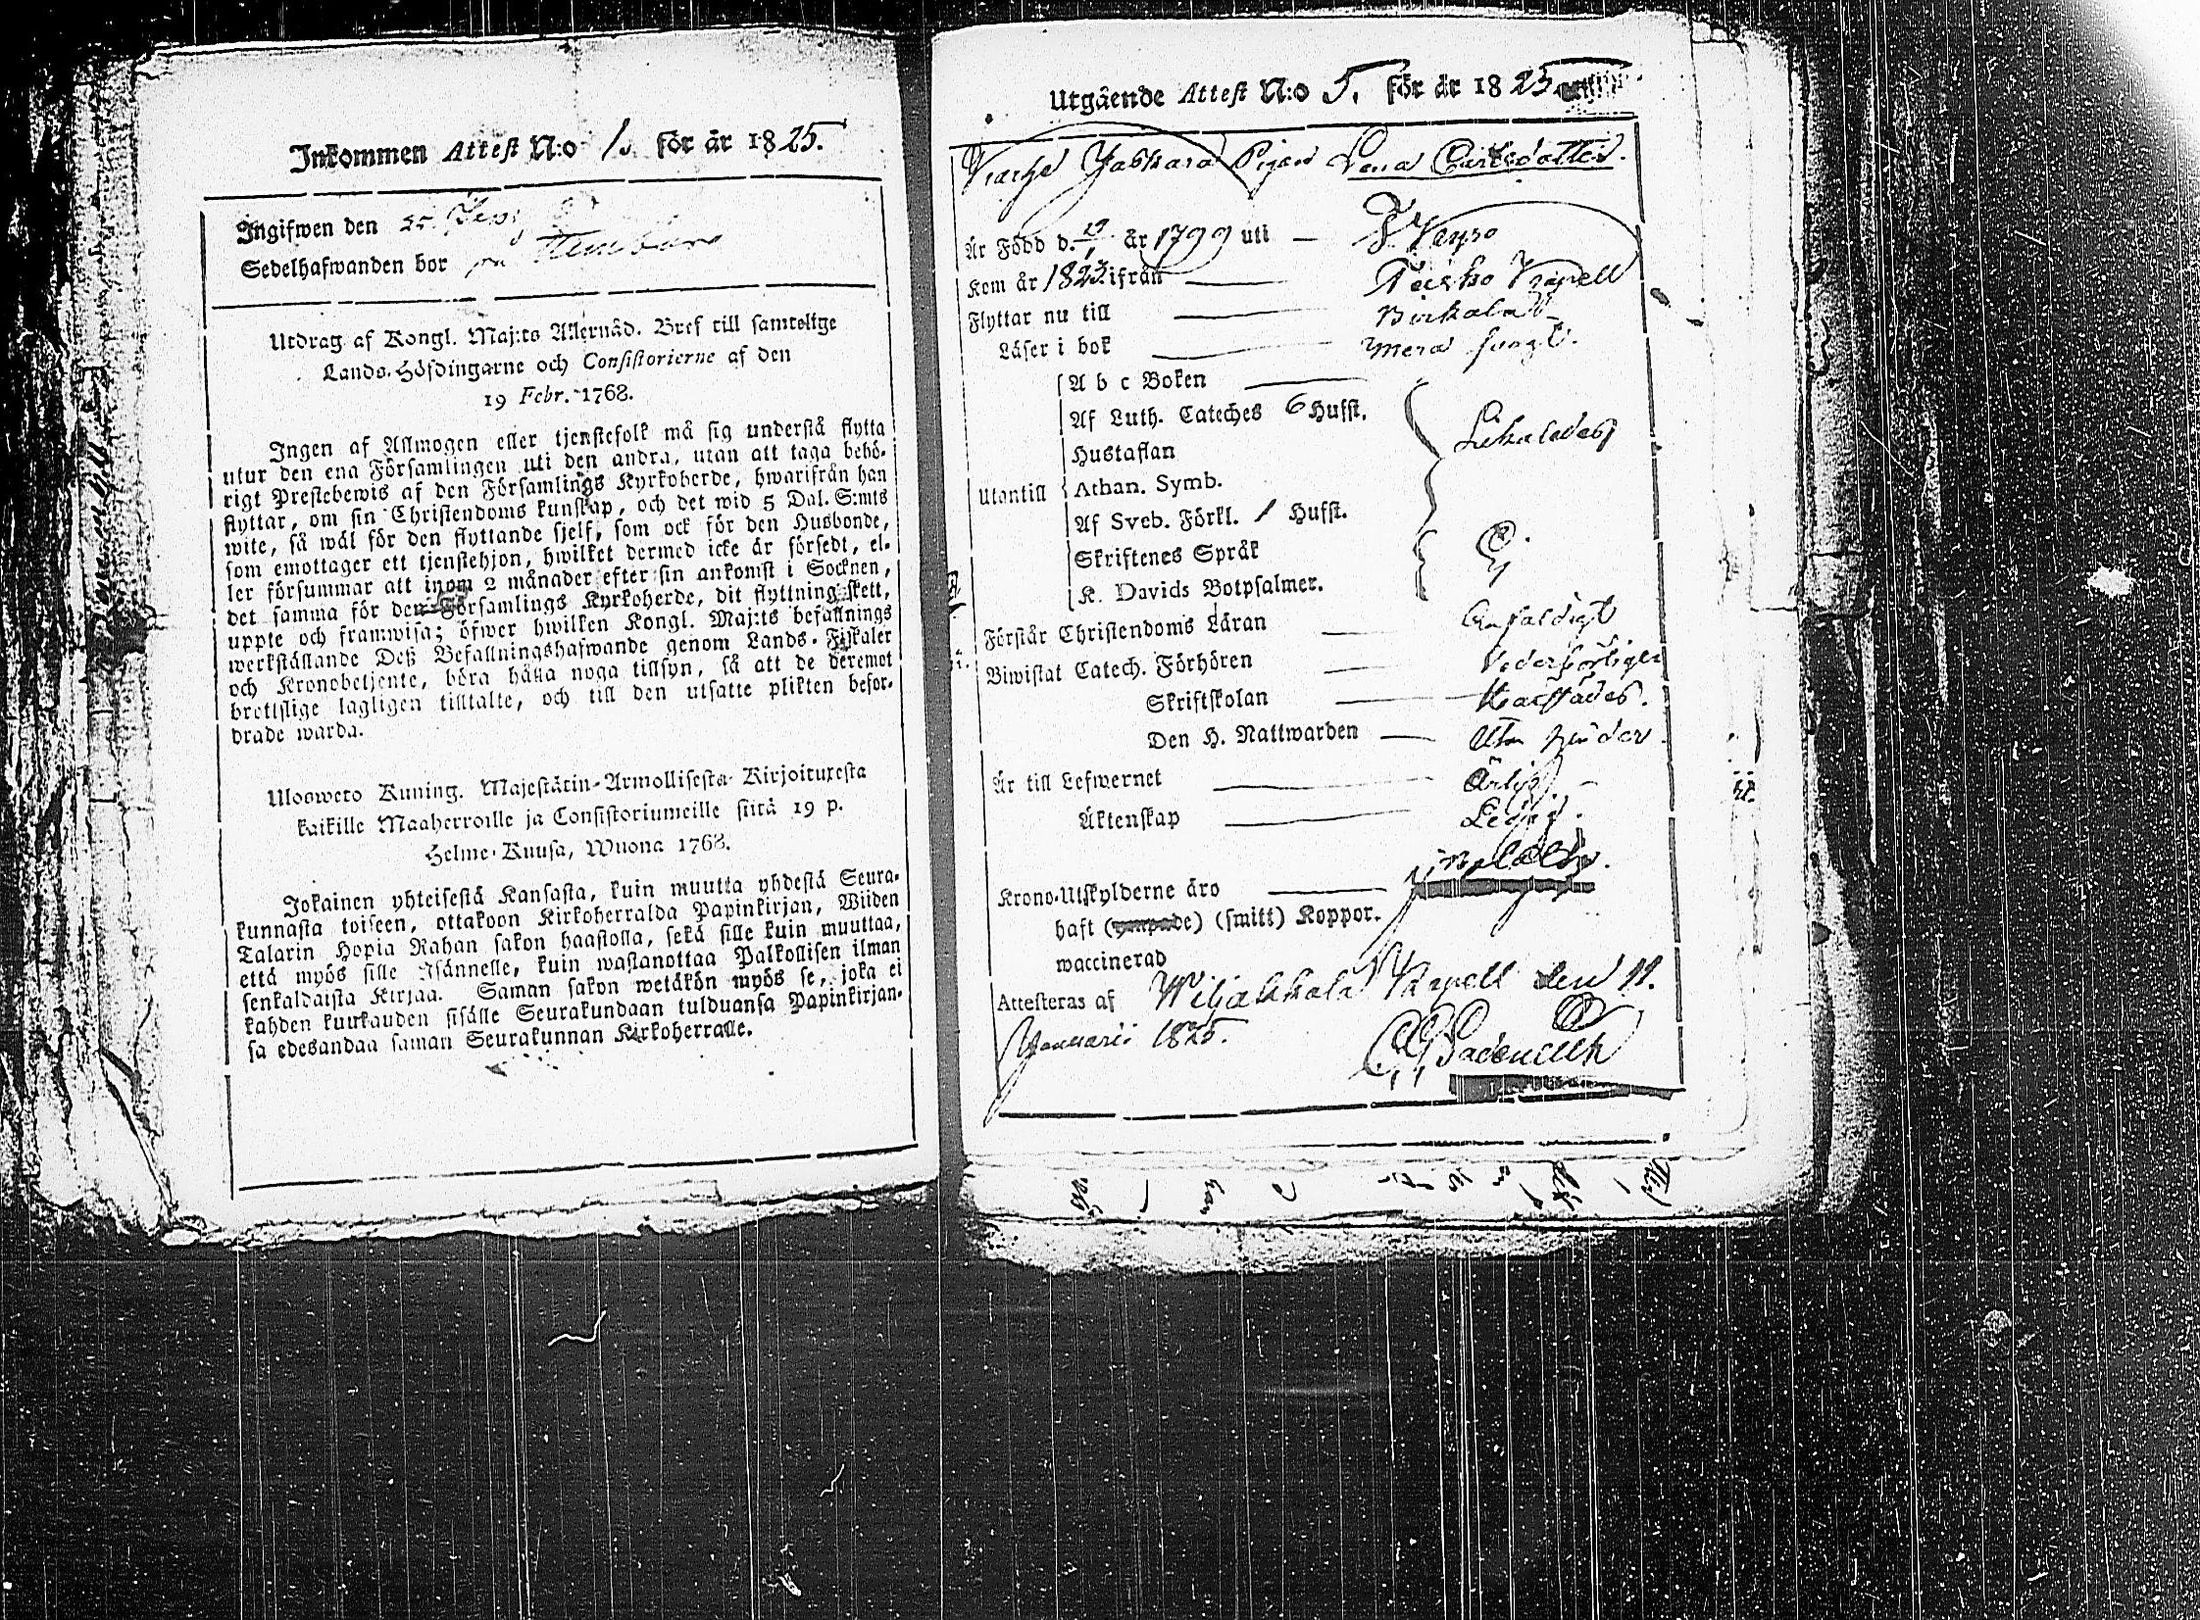 Inkommen Attest N:o 1. för år 1825.
Ingifwen den 25
Sedelhafwanden bor på
Utdrag af Kongl. Maj:ts Allernåd. Bref till samtelige
Lands-Höfdingarne och Consistorierne af den
19 Febr. 1768.
Ingen af Allmogen eller tjenstefolk må sig understå flytta
utur den ena Församlingen uti den andra, utan att taga behö-
rigt Prestebewis af den Församlings Kyrkoherde, hwarifrån han
flyttar, om sin Christendoms kunskap, och det wid 5 Dal. S:mts
wite, så wäl för den flyttande sjelf, som ock för den Husbonde,
som emottager ett tjenstehjon, hwilket dermed icke är försedt, el-
ler försummar att inom 2 månader efter sin ankomst i Socknen,
det samma för den Församlings Kyrkoherde, dit flyttning skett,
uppte och framwisa; öfwer hwilken Kongl. Maj:ts befallnings
werkställande Deß Befallningshafwande genom Lands-Fiskaler
och Kronobetjente, böra hålla noga tillsyn, så att de deremot
brottslige lagligen tilltalte, och till den utsatte plikten befor-
drade warda.
Uloswero Kuning. Majestätin Armollisesta Kirjoituxesta
kaikille Maaherroille ja Consistoriumeille siitä 19 p.
Helme-Kuusa, Wuona 1768.
Jokainen yhteisestä Kansasta, kuin muutta yhdestä Seura-
kunnasta toiseen, ottakoon Kirkoherralda Papinkirjan, Wiiden
Talarin Hopia Rahan sakon haastolla, sekä sille kuin muuttaa,
että myös sille Isännelle, kuin wastanottaa Palkollisen ilman
senkaldaista Kirjaa. Saman sakon wetäkön myös se, joka ei
kahden kuukauden sisälle Seurakundaan tulduansa Papinkirjan-
sa edesandaa saman Seurakunnan Kirkoherralle.
Utgående Attest N:o 5. för år 1825
Pigan Lena Carlsdotter.
Är Född d. 19/1 år 1799 uti —
Kom år 1823 ifrån — Teisko Kapell
Flyttar nu till — Birkala
Läser i bok —
A b c Boken —
Af Luth. Cateches 6 Hufst.
Hustaflan
Utantill Athan. Symb.
Af Sveb. Förkl. 1 Hufst.
Skriftenes Språk
K. Davids Botpsalmer.
Förstår Christendoms Läran — Enfaldigt
Biwistat Catech. Förhören — Vederbörligen
Skriftskolan —
Den H. Nattwarden — Utan hinder
Är till Lefwernet — Ärlig
Äktenskap — Ledig.
Krono-Utskylderne äro —
haft (ympade) (smitt) Koppor.
waccinerad
Attesteras af Wiljakkala Kapell den 11.
Januarii 1825.